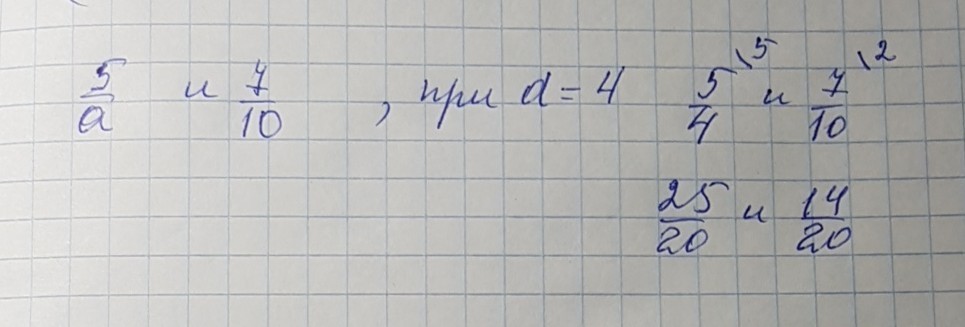 5/a и 7/10, при a = 4 5\5/4 и 7\2/10
25/20 и 14/20